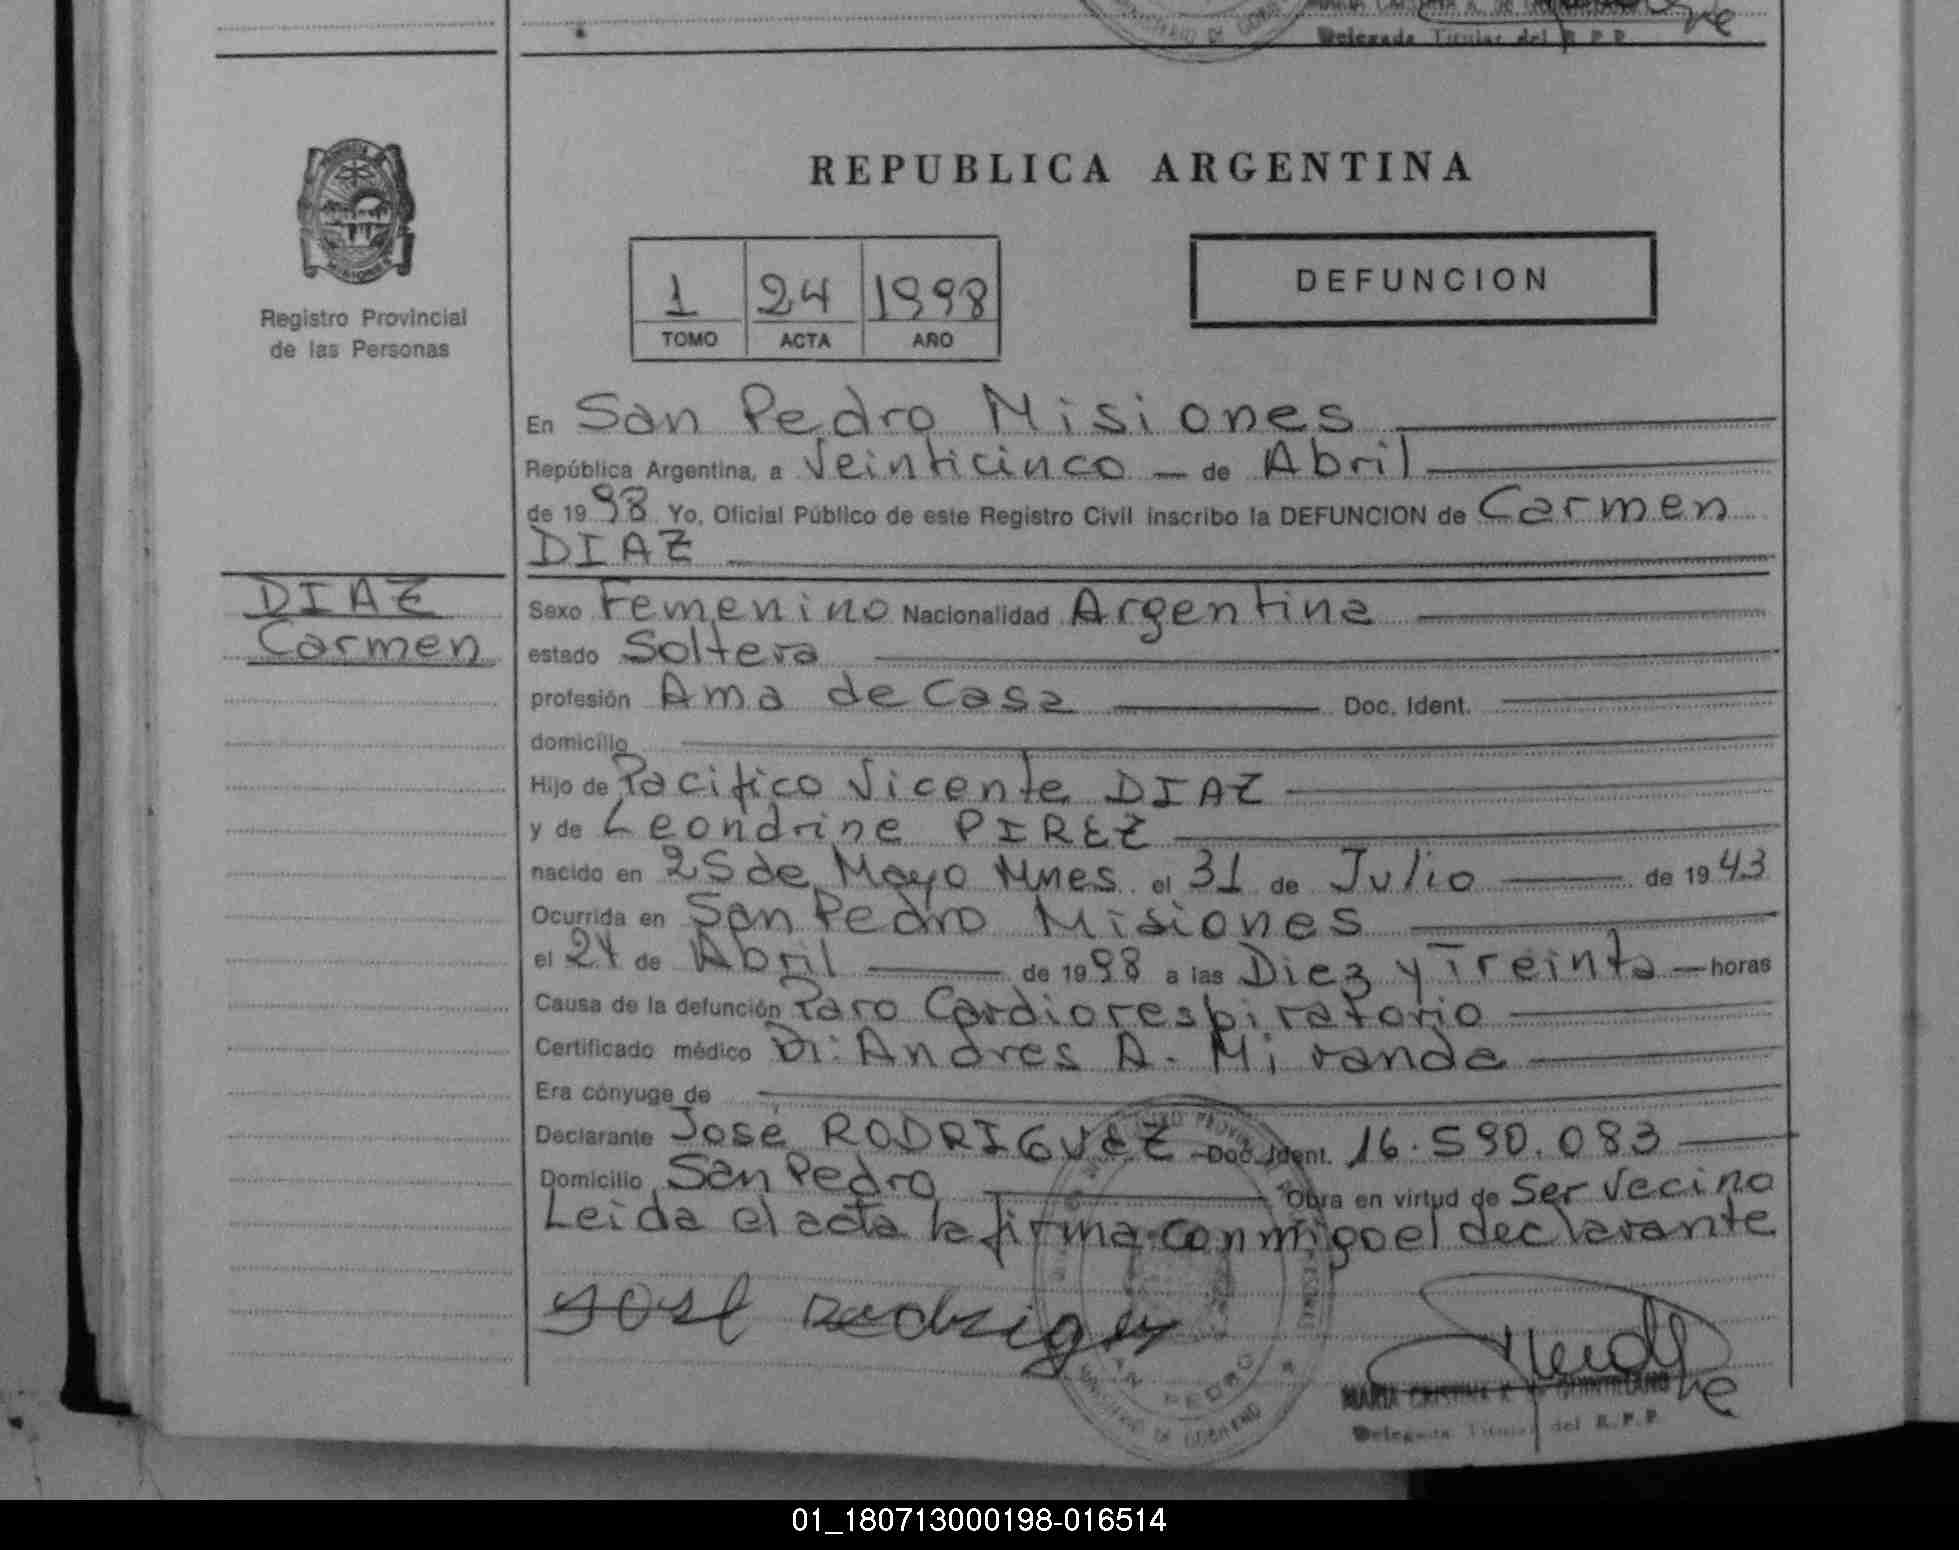 Delegada Titular del R.P.P.
REPUBLICA ARGENTINA
1 24 1998
TOMO ACTA AÑO
DEFUNCION
Registro Provincial
de las Personas
En San Pedro Misiones
República Argentina, a Veinticinco de Abril
de 1998 Yo, Oficial Público de este Registro Civil inscribo la DEFUNCION de Carmen
DIAZ
DIAZ
Carmen
Sexo Femenino Nacionalidad Argentina
estado Soltera
profesión Ama de Casa Doc. Ident.
domicilio
Hijo de Pacifico Vicente DIAZ
y de Leondrina PIREZ
nacido en 25 de Mayo Mnes el 31 de Julio de 1943
Ocurrida en San Pedro Misiones
el 24 de Abril de 1998 a las Diez y Treinta horas
Causa de la defunción Paro Cardiorespiratorio
Certificado médico Dr. Andres A. Miranda
Era cónyuge de
Declarante José RODRIGUEZ Doc. Ident. 16.590.083
Domicilio San Pedro Obra en virtud de Ser Vecino
Leida el acta la firma conmigo el declarante
José Rodriguez
SAN PEDRO
MINISTERIO DE GOBIERNO
MARIA CRISTINA
Delegada Titular del R.P.P.
01_180713000198-016514